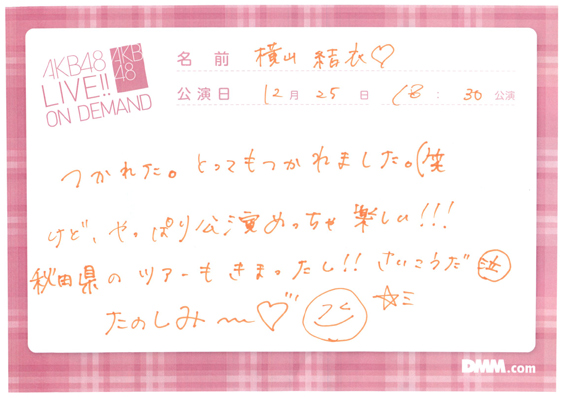 AKB48
LIVE!!
ON DEMAND
AKB
48
名前 横山 結衣♡
公演日 12月 25日 18:30公演
つかれた。とってもつかれました。(笑
けど、やっぱり公演めっちゃ楽しい!!!
秋田県のツアーもきまったし!! さいこうだ
たのしみ〜♡
DMM.com